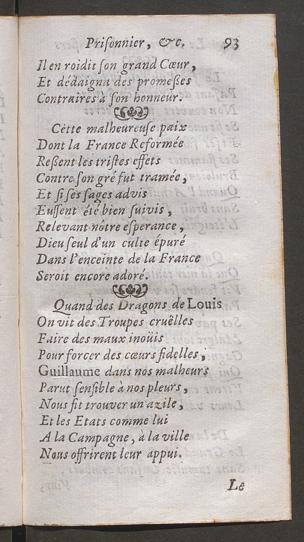 Prisonnier, &c. 93
Il en roidit son grand Cœur,
Et dédaigna des promeßes
Contraires à son honneur.
Cette malheureuse paix
Dont la France Reformée
Reßent les tristes effets
Contre son gré fut tramée,
Et si ses sages advis
Eussent été bien suivis,
Relevant nôtre esperance,
Dieu seul d'un culte épuré
Dans l'enceinte de la France
Seroit encore adoré.
Quand des Dragons de Louis
On vit des Troupes cruëlles
Faire des maux inoüis
Pour forcer des cœurs fidelles,
Guillaume dans nos malheurs
Parut sensible à nos pleurs,
Nous fit trouver un azile,
Et les Etats comme lui
A la Campagne, à la ville
Nous offrirent leur appui.
Le